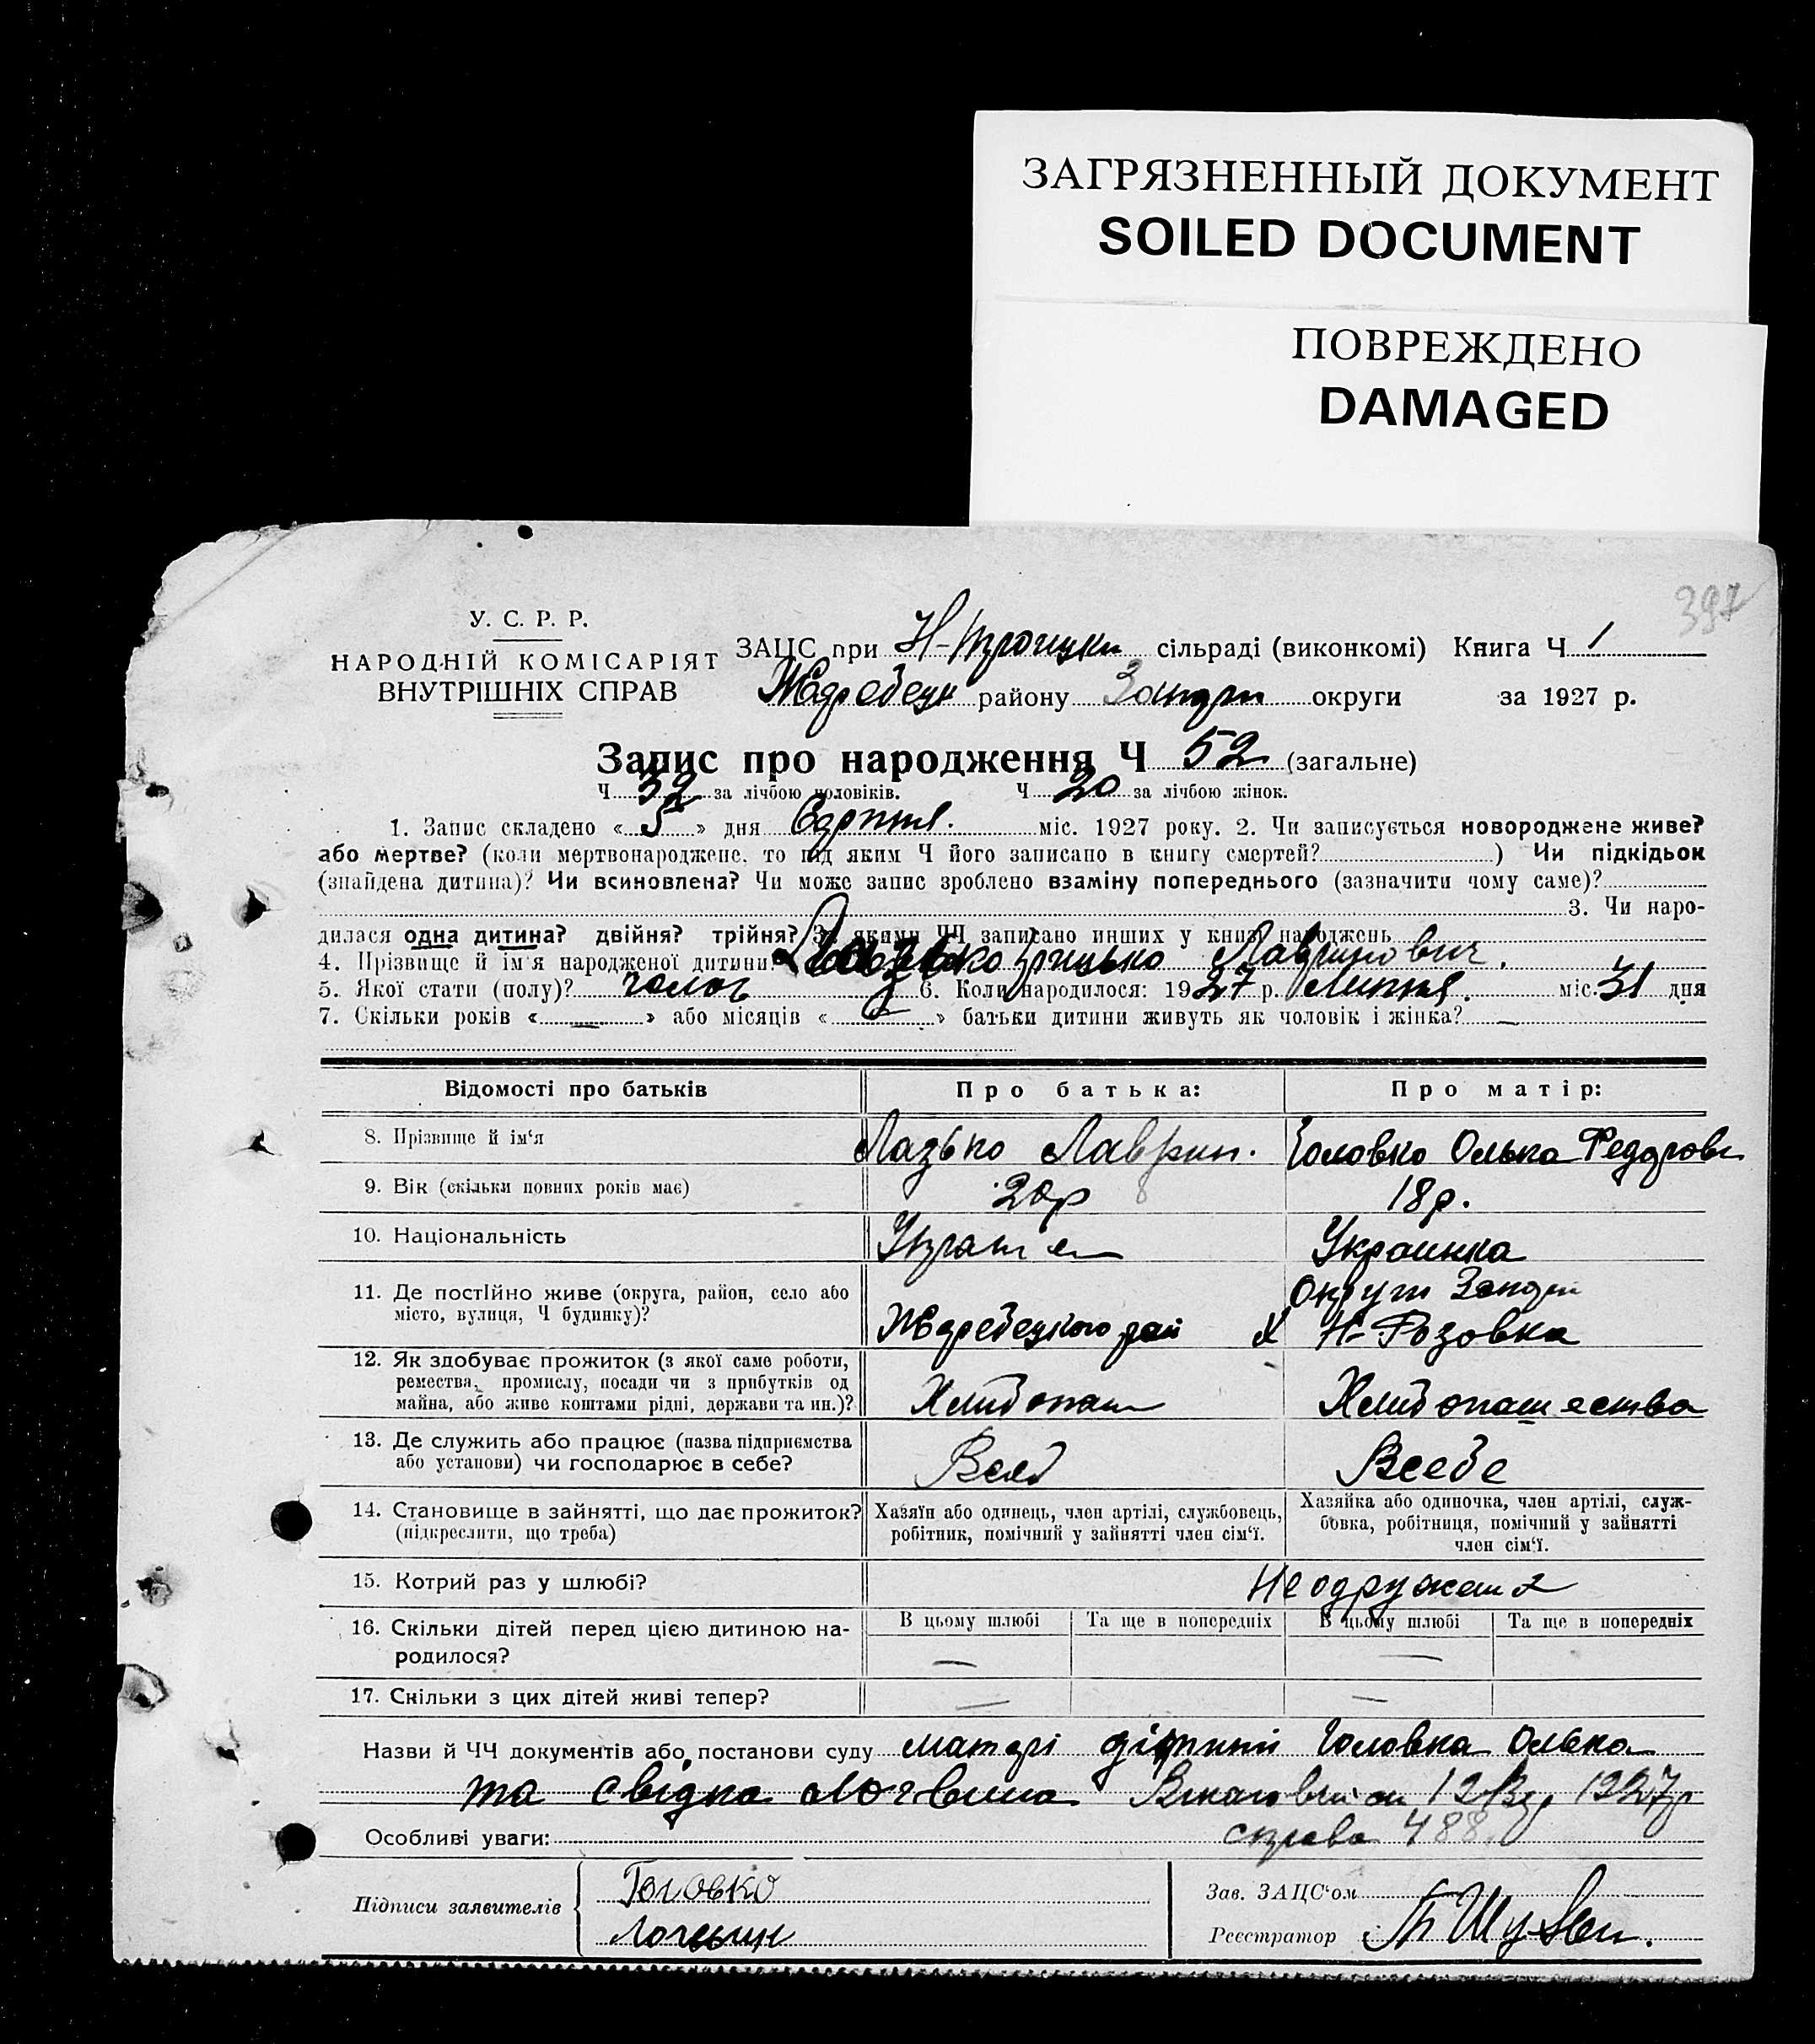 ЗАГРЯЗНЕННЫЙ ДОКУМЕНТ
SOILED DOCUMENT
ПОВРЕЖДЕНО
DAMAGED
397
У. С. Р. Р.
НАРОДНІЙ КОМІСАРІЯТ
ВНУТРІШНІХ СПРАВ
ЗАЦС при Н-Троицки сільраді (виконкомі) Книга Ч 1
Жеребецк району Запор округи за 1927 р.
Запис про народження Ч 52 (загальне)
Ч 32 за лічбою чоловіків. Ч 20 за лічбою жінок.
1. Запис складено « 5 » дня Серпня. міс. 1927 року. 2. Чи записується новороджене живе?
або мертве? (коли мертвонароджене, то під яким Ч його записано в книгу смертей? ) Чи підкідьок
(знайдена дитина)? Чи всиновлена? Чи може запис зроблено взаміну попереднього (зазначити чому саме)?
3. Чи наро-
дилася одна дитина? двійня? трійня? За якими ЧЧ записано инших у книзі народжень
4. Прізвище й ім'я народженої дитини: Лазько Грицько Лавринович.
5. Якої стати (полу)? чолов 6. Коли народилося: 1927 р. Липня. міс. 31 дня
7. Скільки років « — » або місяців « » батьки дитини живуть як чоловік і жінка? —
Відомості про батьків Про батька: Про матір:
8. Прізвище й ім'я Лазько Лаврин. Головко Олька Федоров
9. Вік (скільки повних років має) 20р 18р.
10. Національність Украінец Украинка
11. Де постійно живе (округа, район, село або
місто, вулиця, Ч будинку)?
Округи Запор
Жеребецкого рай х Н-Розовка
12. Як здобуває прожиток (з якої саме роботи,
ремества, промислу, посади чи з прибутків од
майна, або живе коштами рідні, держави та ин.)? Хлибопаш Хлибопашества
13. Де служить або працює (назва підприємства
або установи) чи господарює в себе? Всеб Всебе
14. Становище в зайнятті, що дає прожиток?
(підкреслити, що треба)
Хазяїн або одинець, член артілі, службовець,
робітник, помічний у зайнятті член сім'ї.
Хазяйка або одиночка, член артілі, служ-
бовка, робітниця, помічний у зайнятті
член сім'ї.
15. Котрий раз у шлюбі? Неодружени
16. Скільки дітей перед цією дитиною на-
родилося?
В цьому шлюбі Та ще в попередніх В цьому шлюбі Та ще в попередніх
— —
17. Скільки з цих дітей живі тепер? — —
Назви й ЧЧ документів або постанови суду матері дитини Головка Олька
та свідка Логвина 1927р
Особливі уваги: справа 488.
Підписи заявителів Головко
Логвин
Зав. ЗАЦС'ом
Реєстратор